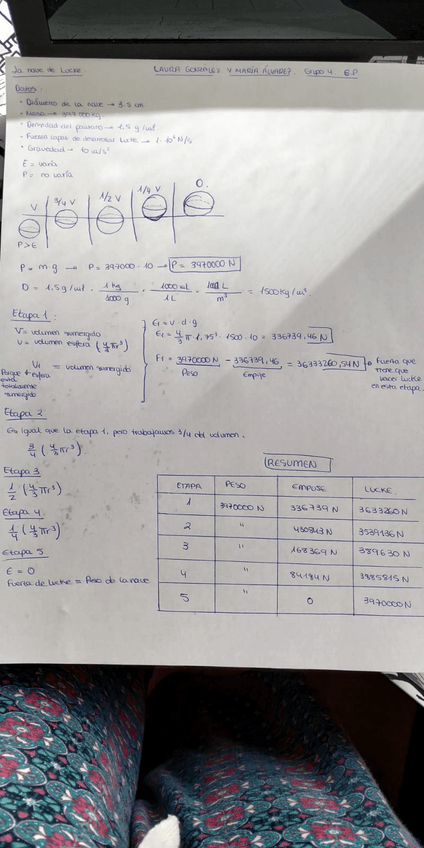 La nave de Locke. LAURA GONZÁLEZ Y MARÍA ÁLVAREZ. Grupo 4. E.P.
Datos:
· Diámetro de la nave → 3.5 cm
· Masa → 397 000 kg
· Densidad del pantano → 1.5 g/ml
· Fuerza capaz de desarrollar Locke → 1·10⁶ N/s
· Gravedad → 10 m/s²
E = varía
P = no varía
V 3/4 V 1/2 V 1/4 V 0.
P>E
P = m·g → P = 397000·10 → P = 3970000 N
D = 1.5 g/ml · 1 kg / 1000 g · 1000 ml / 1 L = L / m³ = 1500 kg/m³.
Etapa 1:
V = volumen sumergido
V = volumen esfera (4/3 πr³)
V₁ = volumen sumergido
Porque la esfera está totalmente sumergido
E₁ = V·d·g
E₁ = 4/3 π·1,75³·1500·10 = 336739,46 N
F₁ = 3970000 N - 336739,46 = 3633260,54 N → Fuerza que tiene que hacer Locke en esta etapa.
Peso Empuje
Etapa 2
Es igual que la etapa 1, pero trabajamos 3/4 del volumen.
3/4 (4/3 πr³)
Etapa 3
1/2 (4/3 πr³)
Etapa 4
1/4 (4/3 πr³)
Etapa 5
E = 0
Fuerza de Locke = Peso de la nave
RESUMEN
ETAPA PESO EMPUJE LOCKE
1 3970000 N 336739 N 3633260 N
2 " N 3539136 N
3 " 168369 N 389630 N
4 " 84184 N 3885815 N
5 " 0 3970000 N